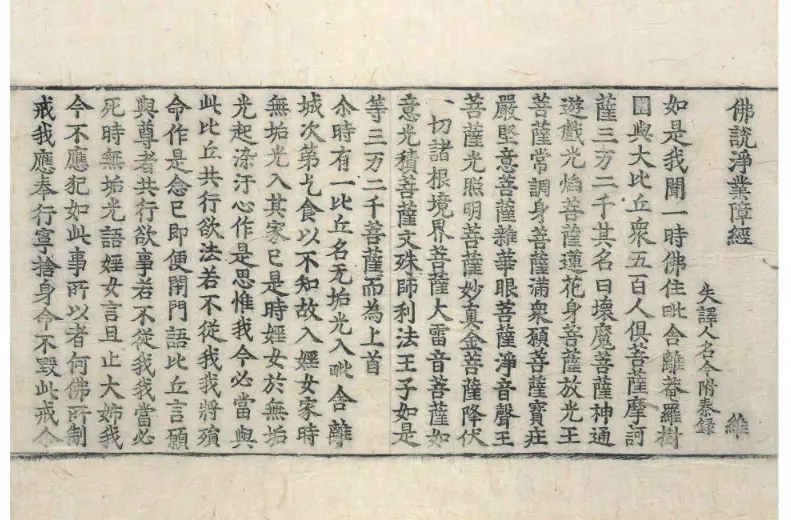 佛說淨業障經
失譯人名今附秦錄 維
如是我聞一時佛住毗舍離菴羅樹
園與大比丘衆五百人俱菩薩摩訶
薩三万二千其名曰壞魔菩薩神通
遊戲光焰菩薩蓮花身菩薩放光王
菩薩常調身菩薩滿衆願菩薩寶庄
嚴堅意菩薩雜華眼菩薩淨音聲王
菩薩光照明菩薩妙真金菩薩降伏
一切諸根境界菩薩大雷音菩薩如
意光積菩薩文殊師利法王子如是
等三万二千菩薩而為上首
尒時有一比丘名无垢光入毗舍離
城次第乞食以不知故入婬女家時
無垢光入其家已是時婬女於無垢
光起染汙心作是思惟我今必當與
此比丘共行欲法若不從我我將殞
命作是念已即便閇門語比丘言願
與尊者共行欲事若不從我我當必
死時無垢光語婬女言且止大姊我
今不應犯如此事所以者何佛所制
戒我應奉行寧捨身命不毀此戒今